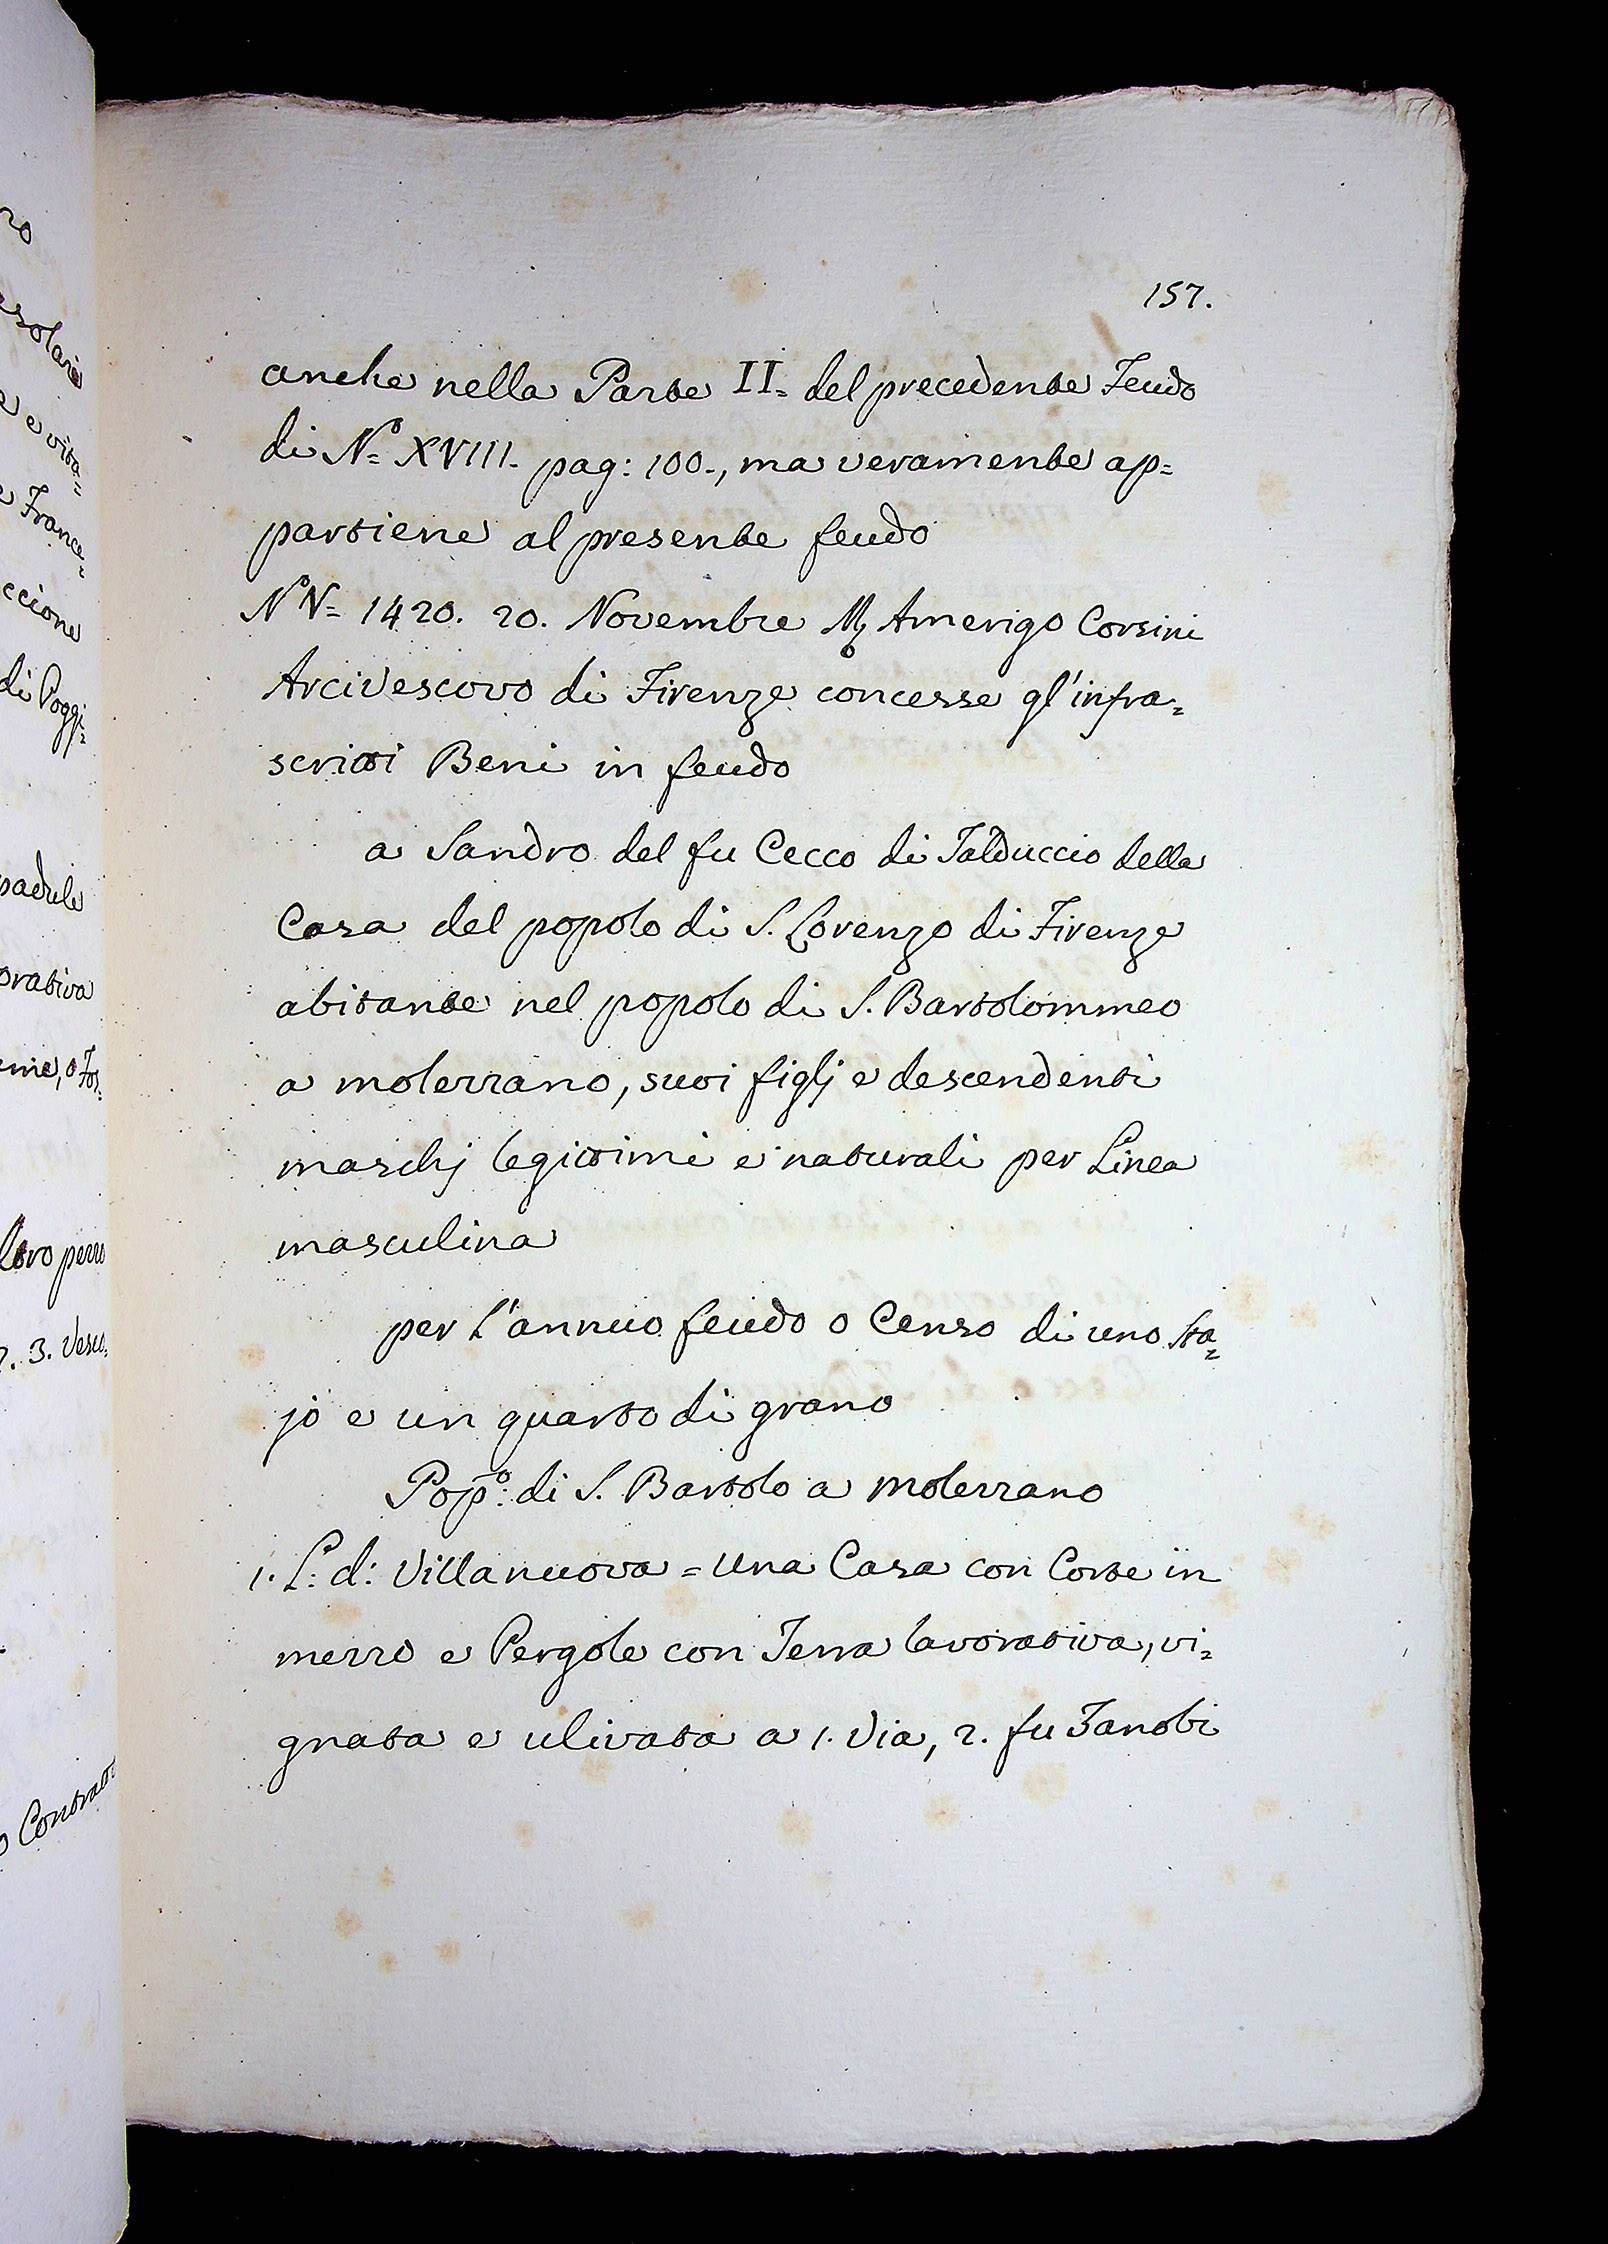 157.
anche nella Parte II= del precedente Feudo
di N.º= XVIII. pag: 100., ma veramente ap=
partiene al presente feudo
Nº V= 1420. 20. Novembre Amerigo Corsini
Arcivescovo di Firenze concesse gl'infra=
scritti Beni in feudo
a Sandro del fu Cecco di Talduccio della
Casa del popolo di S. Lorenzo di Firenze
abitante nel popolo di S. Bartolommeo
a molezzano, suoi figlj e descendenti
maschj legittimi e naturali per Linea
masculina
per l'annuo feudo o Censo di uno Sta=
jo e un quarto di grano
Popº: di S. Bartolo a molezzano
1. L: d: Villanuova = una Casa con Corte in
mezzo e Pergole con Terra lavorativa, vi=
gnata e ulivata a 1. Via, 2. fu Zanobi
ro
e vita=
e France=
ccione
di Poggi=
padule
orativa
loro
3. Vesco=